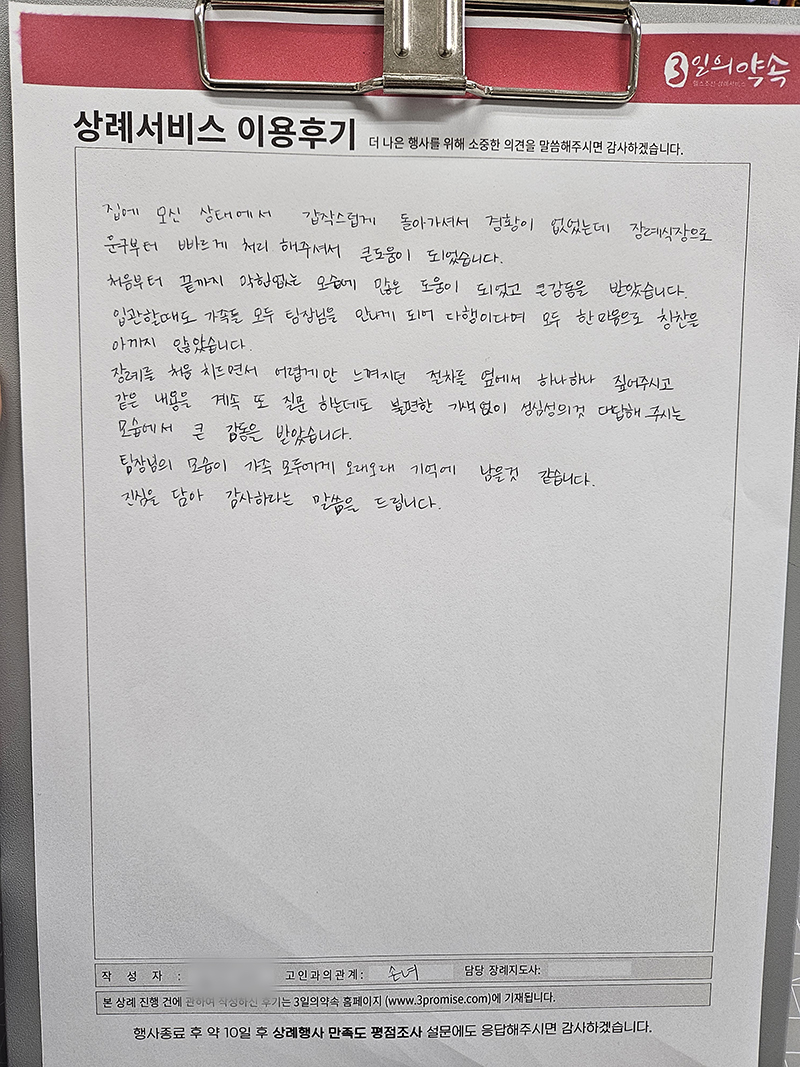 3일의약속
상례서비스 이용후기 더 나은 행사를 위해 소중한 의견을 말씀해주시면 감사하겠습니다.
집에 모신 상태에서 갑작스럽게 돌아가셔서 경황이 없었는데 장례식장으로
운구부터 빠르게 처리 해주셔서 큰도움이 되었습니다.
처음부터 끝까지 막힘없는 모습에 많은 도움이 되었고 큰감동을 받았습니다.
입관할때도 가족들 모두 팀장님을 만나게 되어 다행이다며 모두 한마음으로 칭찬을
아끼지 않았습니다.
장례를 처음 치르면서 어렵게만 느껴지던 절차를 옆에서 하나하나 짚어주시고
같은 내용을 계속 또 질문 하는데도 불편한 기색없이 성심성의것 대답해 주시는
모습에서 큰 감동을 받았습니다.
팀장님의 모습이 가족 모두에게 오래오래 기억에 남을것 같습니다.
진심을 담아 감사하라는 말씀을 드립니다.
작 성 자 : 고인과의관계: 손녀 담당 장례지도사:
본 상례 진행 건에 관하여 작성하신 후기는 3일의약속 홈페이지 (www.3promise.com)에 기재됩니다.
행사종료 후 약 10일 후 상례행사 만족도 평점조사 설문에도 응답해주시면 감사하겠습니다.